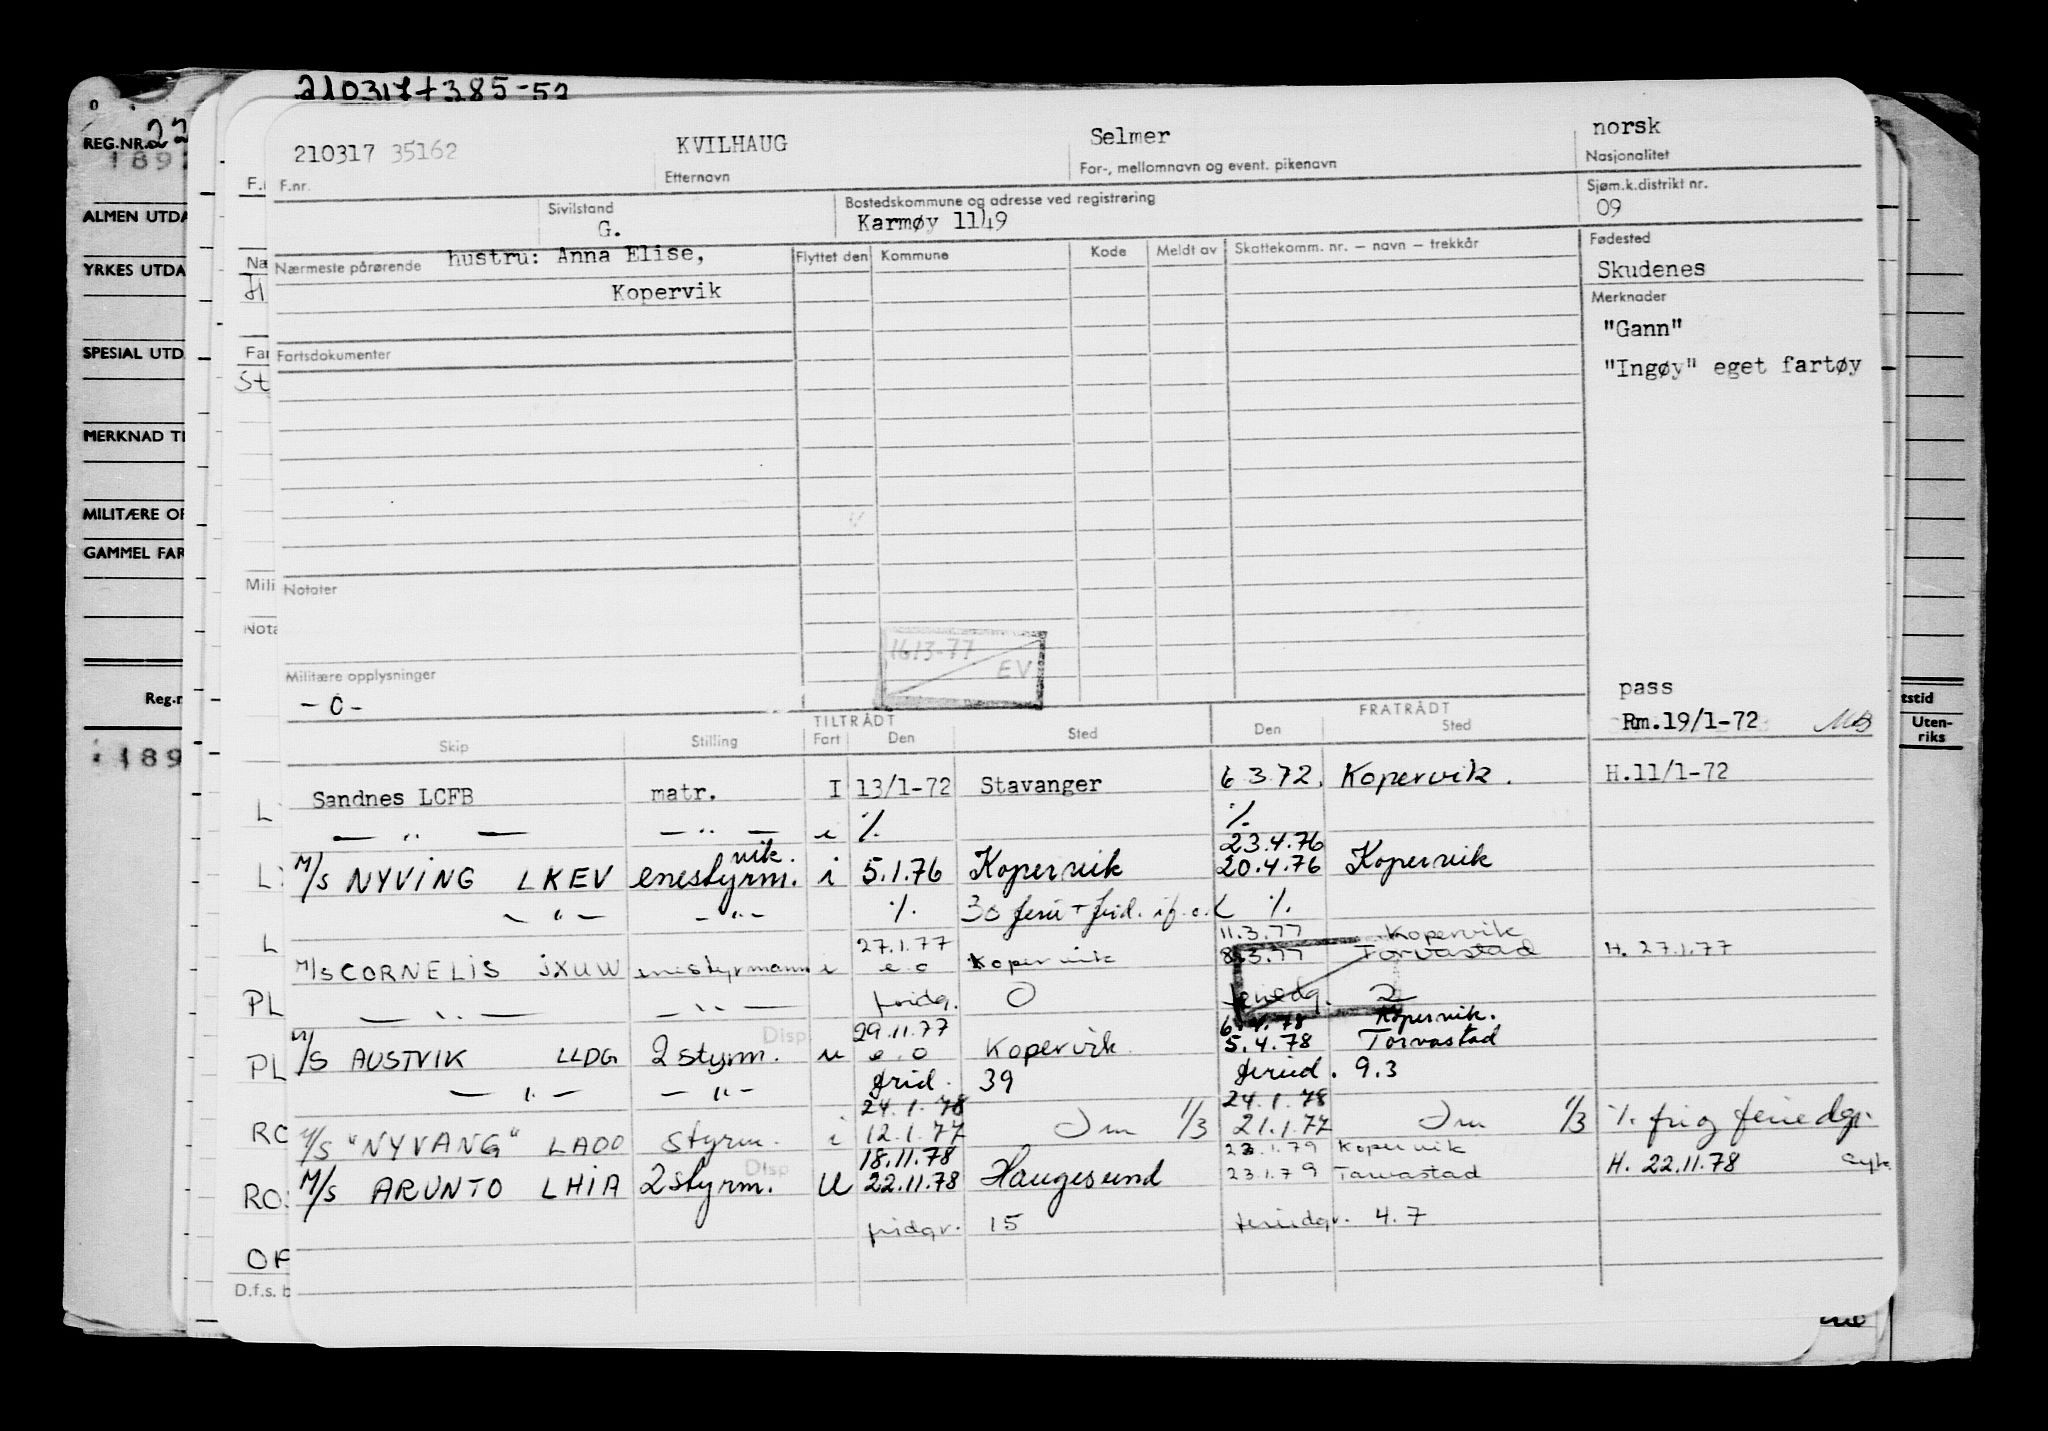 210317+385-52
REG.NR. 22
189
ALMEN UTDA
YRKES UTDA
SPESIAL UTD
MERKNAD TI
MILITÆRE OP
GAMMEL FAR
Reg.n
189
210317 35162 KVILHAUG Selmer norsk
F.nr. Etternavn For-, mellomnavn og event. pikenavn Nasjonalitet
Sivilstand Bostedskommune og adresse ved registrering Sjøm.k.distrikt nr.
G. Karmøy 1149 09
Nærmeste pårørende hustru: Anna Elise, Flyttet den Kommune Kode Meldt av Skattekomm. nr. – navn – trekkår Fødested
Kopervik Skudenes
Merknader
"Gann"
Fartsdokumenter "Ingøy" eget fartøy
Notater
1613-77
EV
Militære opplysninger pass
- 0 - Rm.19/1-72 MB
TILTRÅDT FRATRÅDT
Skip Stilling Fart Den Sted Den Sted
Sandnes LCFB matr. I 13/1-72 Stavanger 6 3.72. Kopervik. H.11/1-72
— " — — " — i % %
vik. 23.4.76
M/S NYVING LKEV enestyrm. i 5.1.76 Kopervik 20.4.76 Kopervik
— " — — " — % 30 %
27.1.77 11.3.77 Kopervik
M/S CORNELIS JXUW enestyrmann i e.o Kopervik 8.3.77 Torvastad H. 27.1.77
— " — — " — fridg. 0 feriedg. 2
Disp 29.11.77 6.4.78 Kopervik.
M/S AUSTVIK LLDG 2 styrm. u e.o Kopervik 5.4.78 Torvastad
— " — — " — frid. 39 feried. 9.3
24.1.78 24.1.78
M/S "NYVANG" LAOO styrm. i 12.1.77 1/3 21.1.77 1/3 %. fri og feriedgr.
Disp 18.11.78 23.1.79 Kopervik
M/S ARUNTO LHIA 2 styrm. U 22.11.78 Haugesund 23.1.79 Torvastad H. 22.11.78
fridgr. 15 feriedgr. 4.7
D.f.s. b
tstid
Uten-
riks